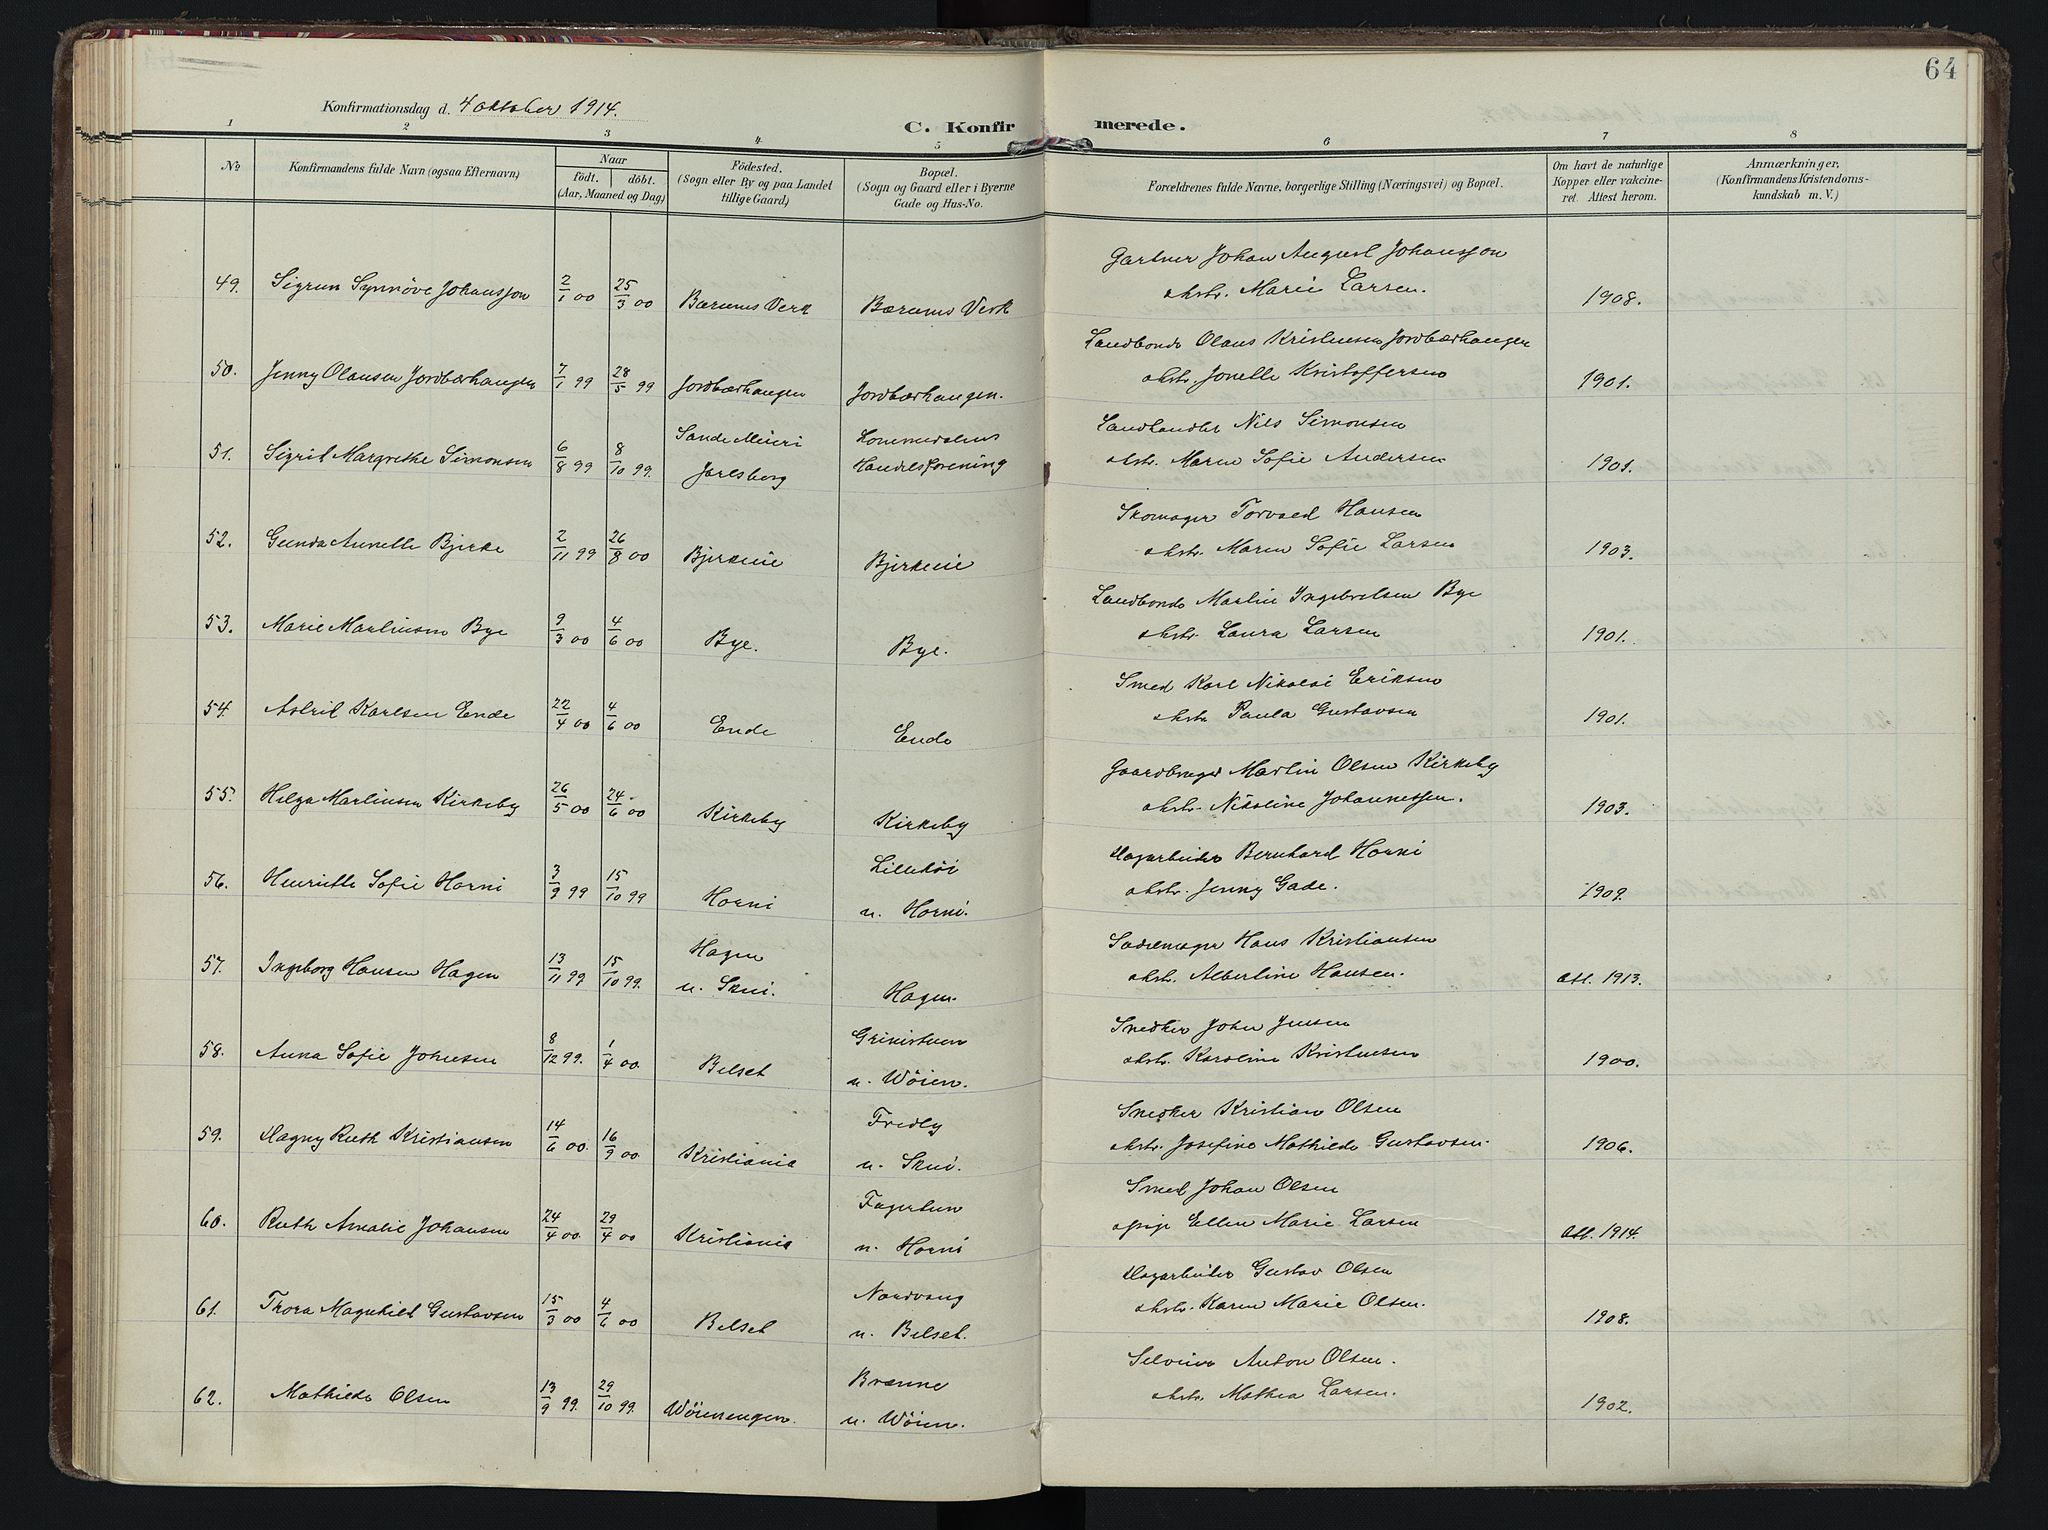 64
Konfirmationsdag d. 4 oktober 1914.
C. Konfirmerede.
1 2 3 4 5 6 7 8
No
Konfirmandens fulde Navn (ogsaa Efternavn)
Naar
födt. döbt.
(Aar, Maaned og Dag)
Födested.
(Sogn eller By og paa Landet
tillige Gaard)
Bopæl.
(Sogn og Gaard eller i Byerne
Gade og Hus-No.
Forældrenes fulde Navne, borgerlige Stilling (Næringsvei) og Bopæl.
Om havt de naturlige
Kopper eller vakcine-
ret. Attest herom.
Anmærkninger,
(Konfirmandens Kristendoms-
kundskab m. V.)
Gartner Johan August Johansson
49. Sigrun Synnöve Johansson 2/1 00 25/3 00 Bærums Verk Bærums Verk ohstr. Marie Larsen. 1908.
Landbonde Olaus Kristensen Jordbærhaugen
50. Jenny Olausen Jordbærhaugen 7/1 99 28/5 99 Jordbærhaugen Jordbærhaugen. ohstr. Jonette Kristoffersen 1901.
Sande Meieri Lommedalens Landhandler Nils Simonsen
51. Sigrid Margrethe Simonsen 6/8 99 8/10 99. Jarlsberg Handelsforening ohstr. Maren Sofie Andersen 1901.
Skomager Torvald Hansen
52. Gunda Annette Bjerke 2/11 99 26/8 00 Bjerkeeie Bjerkeeie ohstr. Maren Sofie Larsen 1903.
Landbonde Martin Ingebretsen Bye
53. Marie Martinsen Bye 9/3 00 4/6 00 Bye. Bye. ohstr. Laura Larsen 1901.
Smed Karl Nikolai Eriksen
54. Astrid Karlsen Ende 22/4 00 4/6 00 Ende Ende ohstr. Paula Gustavsen 1901.
Gaardbruger Martin Olsen Kirkeby
55. Helga Martinsen Kirkeby 26/5 00 24/6 00 Kirkeby Kirkeby ohstr. Nikoline Johannessen. 1903.
Lillehöi Dagarbeider Bernhard Horni
56. Henriette Sofie Horni 3/9 99 15/10 99 Horni u. Horni. ohstr. Jenny Gade. 1909.
Hagen Sadelmager Hans Kristiansen
57. Ingeborg Hansen Hagen 13/11 99 15/10 99. u. Skui. Hagen. ohstr. Albertine Hansen. att. 1913.
Grinistuen Snedker John Jensen
58. Anna Sofie Johnsen 8/12 99. 1/4 00. Belset u. Wöien. ohstr. Karoline Kristensen 1900.
Fredly Snedker Kristian Olsen
59. Dagny Ruth Kristiansen 14/6 00. 16/9 00. Kristiania u. Skui. ohstr. Josefine Mathilde Gustavsen. 1906.
Fagertun Smed Johan Olsen
60. Ruth Amalie Johansen 24/4 00. 29/4 00 Kristiania u. Horni opige Ellen Marie Larsen att. 1914.
Nordvang Dagarbeider Gustav Olsen
61. Thora Magnhild Gustavsen 15/3 00 4/6 00 Belset u. Belset. ohstr. Karen Marie Olsen. 1908.
Brænne Selveier Anton Olsen.
62. Mathilde Olsen 13/9 99. 29/10 99. Wöienengen. u. Wöien. ohstr. Mathea Larsen. 1902.